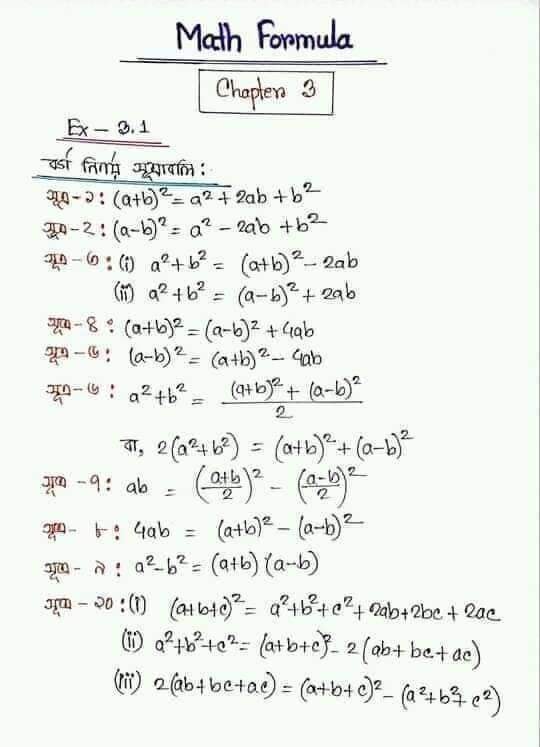 Math Formula
Chapter 3
Ex - 3.1
বর্গ নির্ণয় সূত্রাবলি :
সূত্র-১ : (a+b)² = a² + 2ab + b²
সূত্র-২ : (a-b)² = a² - 2ab + b²
সূত্র-৩ : (i) a²+b² = (a+b)² - 2ab
(ii) a²+b² = (a-b)² + 2ab
সূত্র-৪ : (a+b)² = (a-b)² + 4ab
সূত্র-৫ : (a-b)² = (a+b)² - 4ab
সূত্র-৬ : a²+b² = ((a+b)² + (a-b)²)/2
বা, 2(a²+b²) = (a+b)² + (a-b)²
সূত্র-৭ : ab = ((a+b)/2)² - ((a-b)/2)²
সূত্র-৮ : 4ab = (a+b)² - (a-b)²
সূত্র-৯ : a²-b² = (a+b) (a-b)
সূত্র-১০ : (i) (a+b+c)² = a²+b²+c²+2ab+2bc+2ac
(ii) a²+b²+c² = (a+b+c)² - 2(ab+bc+ac)
(iii) 2(ab+bc+ac) = (a+b+c)² - (a²+b²+c²)